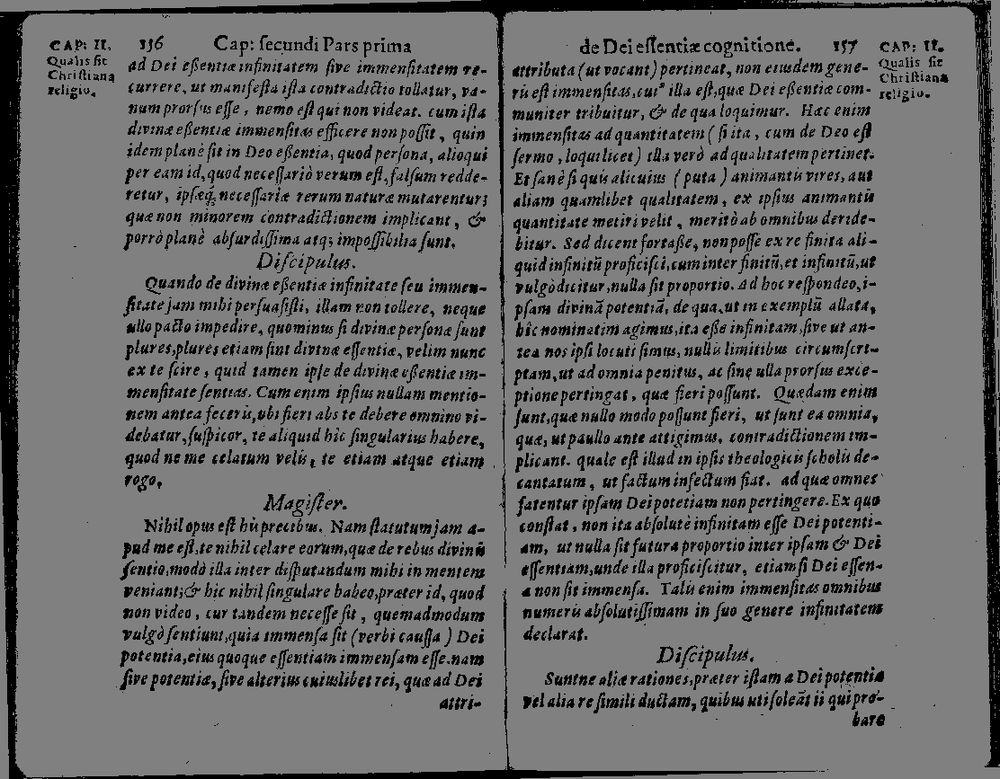 CAP: II.
Qualis ſit
Chriſtiana
religio.
156 Cap: ſecundi Pars prima
ad Dei eßentiæ infinitatem ſive immenſitatem re-
currere, ut manifeſta iſta contradictio tollatur, va-
num prorſus eſſe, nemo eſt qui non videat. cum iſta
divinæ eßentiæ immenſitas efficere non poſſit, quin
idem planè ſit in Deo eßentia, quod perſona, alioqui
per eam id, quod neceſſariò verum eſt, falſum redde-
retur, ipſæq; neceſſariæ rerum naturæ mutarentur;
quæ non minorem contradictionem implicant, &
porrò planè abſurdiſſima atq; impoſſibilia ſunt.
Diſcipulus.
Quando de divinæ eßentiæ infinitate ſeu immen-
ſitate jam mihi perſuaſiſti, illam non tollere, neque
ullo pacto impedire, quominus ſi divinæ perſonæ ſunt
plures, plures etiam ſint divinæ eſſentiæ, velim nunc
ex te ſcire, quid tamen ipſe de divinæ eßentiæ im-
menſitate ſentias. Cum enim ipſius nullam mentio-
nem antea feceris, ubi fieri abs te debere omnino vi-
debatur, ſuſpicor, te aliquid hîc ſingularius habere,
quod ne me celatum velis, te etiam atque etiam
rogo.
Magiſter.
Nihil opus eſt his precibus. Nam ſtatutum jam a-
pud me eſt, te nihil celare eorum, quæ de rebus divinis
ſentio, modò illa inter diſputandum mihi in mentem
veniant; & hîc nihil ſingulare habeo, præter id, quod
non video, cur tandem neceſſe ſit, quemadmodum
vulgò ſentiunt, quia immenſa ſit (verbi cauſſa) Dei
potentia, ejus quoque eſſentiam immenſam eſſe. nam
ſive potentiæ, ſive alterius cuiuslibet rei, quæ ad Dei
attri-
de Dei eſſentiæ cognitione. 157
CAP: II.
Qualis ſit
Chriſtiana
religio.
attributa (ut vocant) pertineat, non eiusdem gene-
ris eſt immenſitas, cui illa eſt, quæ Dei eſſentiæ com-
muniter tribuitur, & de qua loquimur. Hæc enim
immenſitas ad quantitatem (ſi ita, cum de Deo eſt
ſermo, loqui licet) illa verò ad qualitatem pertinet.
Et ſanè ſi quis alicuius (puta) animantis vires, aut
aliam quamlibet qualitatem, ex ipſius animantis
quantitate metiri velit, meritò ab omnibus deride-
bitur. Sed dicent fortaße, non poſſe ex re finita ali-
quid infinitũ proficiſci, cum inter finitũ, et infinitũ, ut
vulgò dicitur, nulla ſit proportio. Ad hoc reſpondeo, i-
pſam divinã potentiã, de qua, ut in exemplũ allata,
hîc nominatim agimus, ita eße infinitam, ſive ut an-
tea nos ipſi locuti ſimus, nullis limitibus circumſcri-
ptam, ut ad omnia penitus, ac ſine ulla prorſus exce-
ptione pertingat, quæ fieri poſſunt. Quædam enim
ſunt, quæ nullo modo poſſunt fieri, ut ſunt ea omnia,
quæ, ut paullo ante attigimus, contradictionem im-
plicant. quale eſt illud in ipſis theologicis ſcholis de-
cantatum, ut factum infectum fiat. ad quæ omnes
fatentur ipſam Dei potẽtiam non pertingere. Ex quo
conſtat, non ita abſolutè infinitam eſſe Dei potenti-
am, ut nulla ſit futura proportio inter ipſam & Dei
eſſentiam, unde illa proficiſcitur, etiamſi Dei eſſen-
a non ſit immenſa. Talis enim immenſitas omnibus
numeris abſolutiſſimam in ſuo genere infinitatem
declarat.
Diſcipulus.
Suntne aliæ rationes, præter iſtam a Dei potentia
vel alia re ſimili ductam, quibus uti ſoleãt ii qui pro-
bare